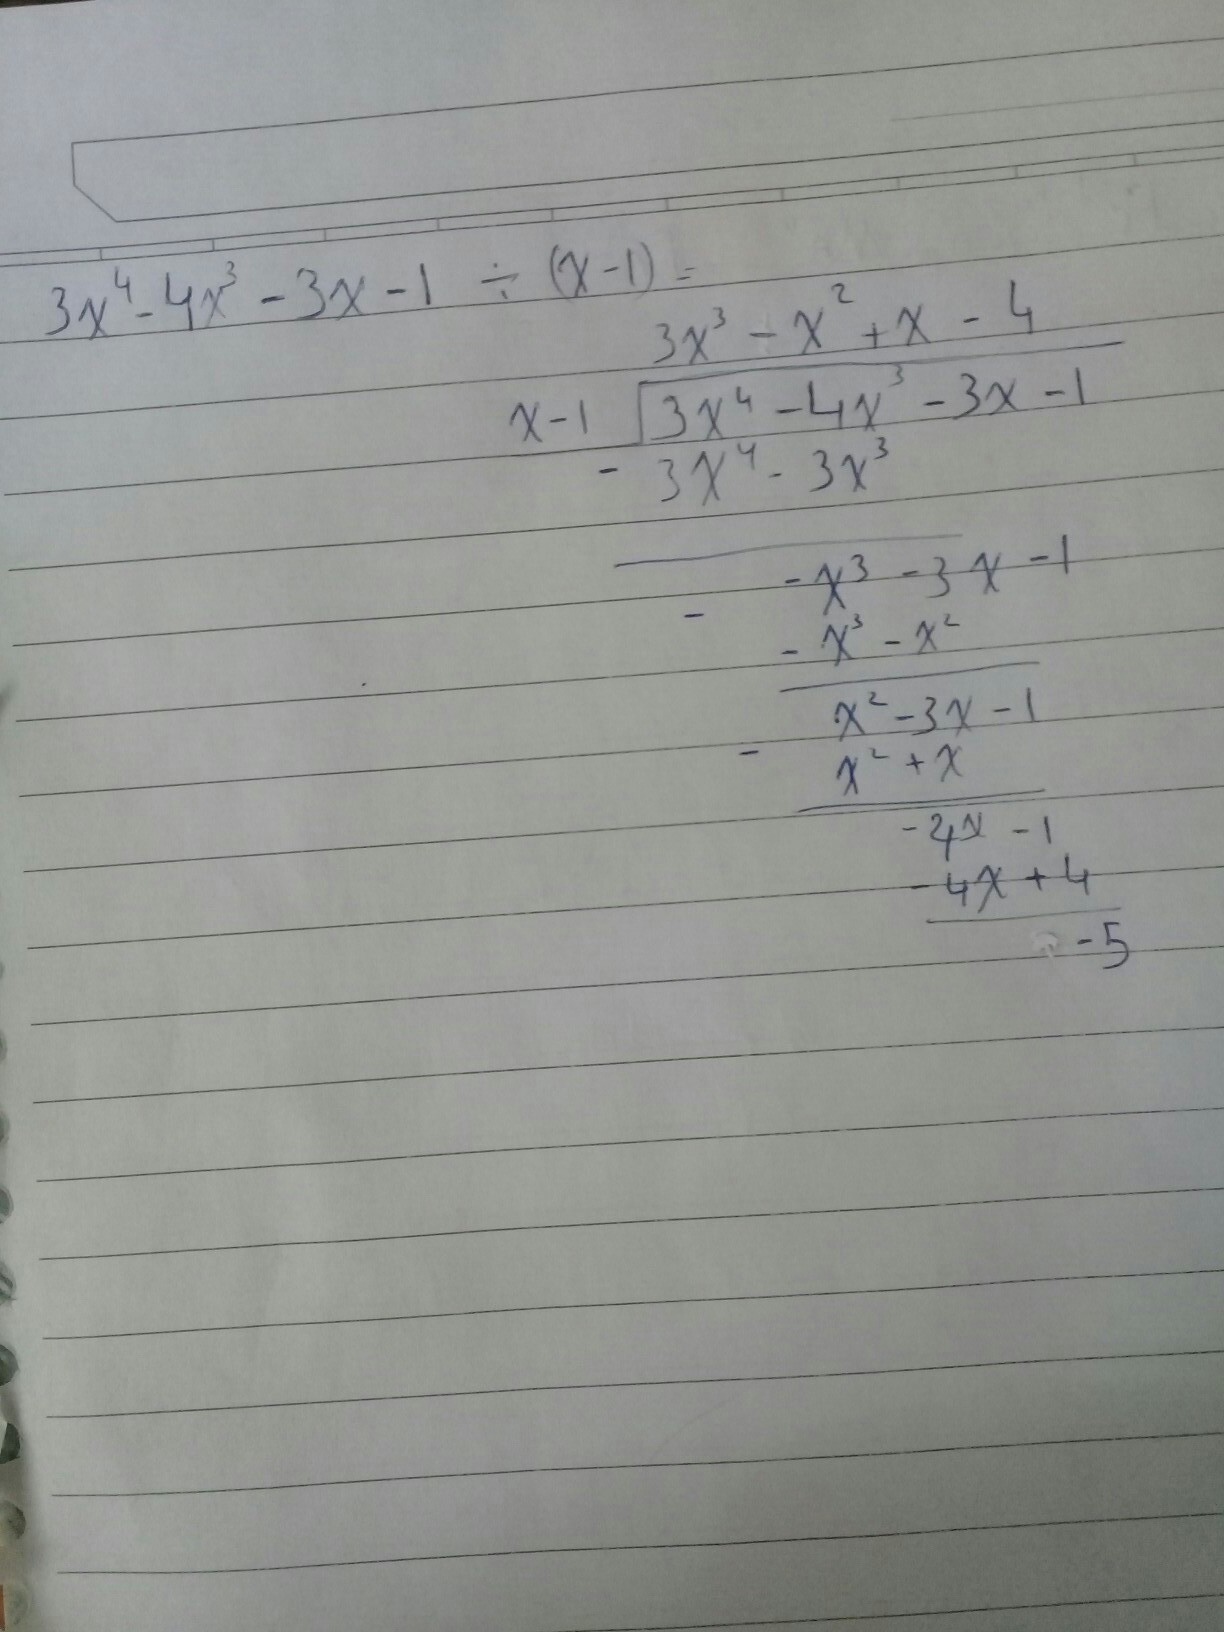 3x⁴ - 4x³ - 3x - 1 ÷ (x - 1) =
3x³ - x² + x - 4
x - 1 √3x⁴ - 4x³ - 3x - 1
- 3x⁴ - 3x³
- x³ - 3x - 1
-
- x³ - x²
x² - 3x - 1
-
x² + x
- 4x - 1
- 4x + 4
- 5